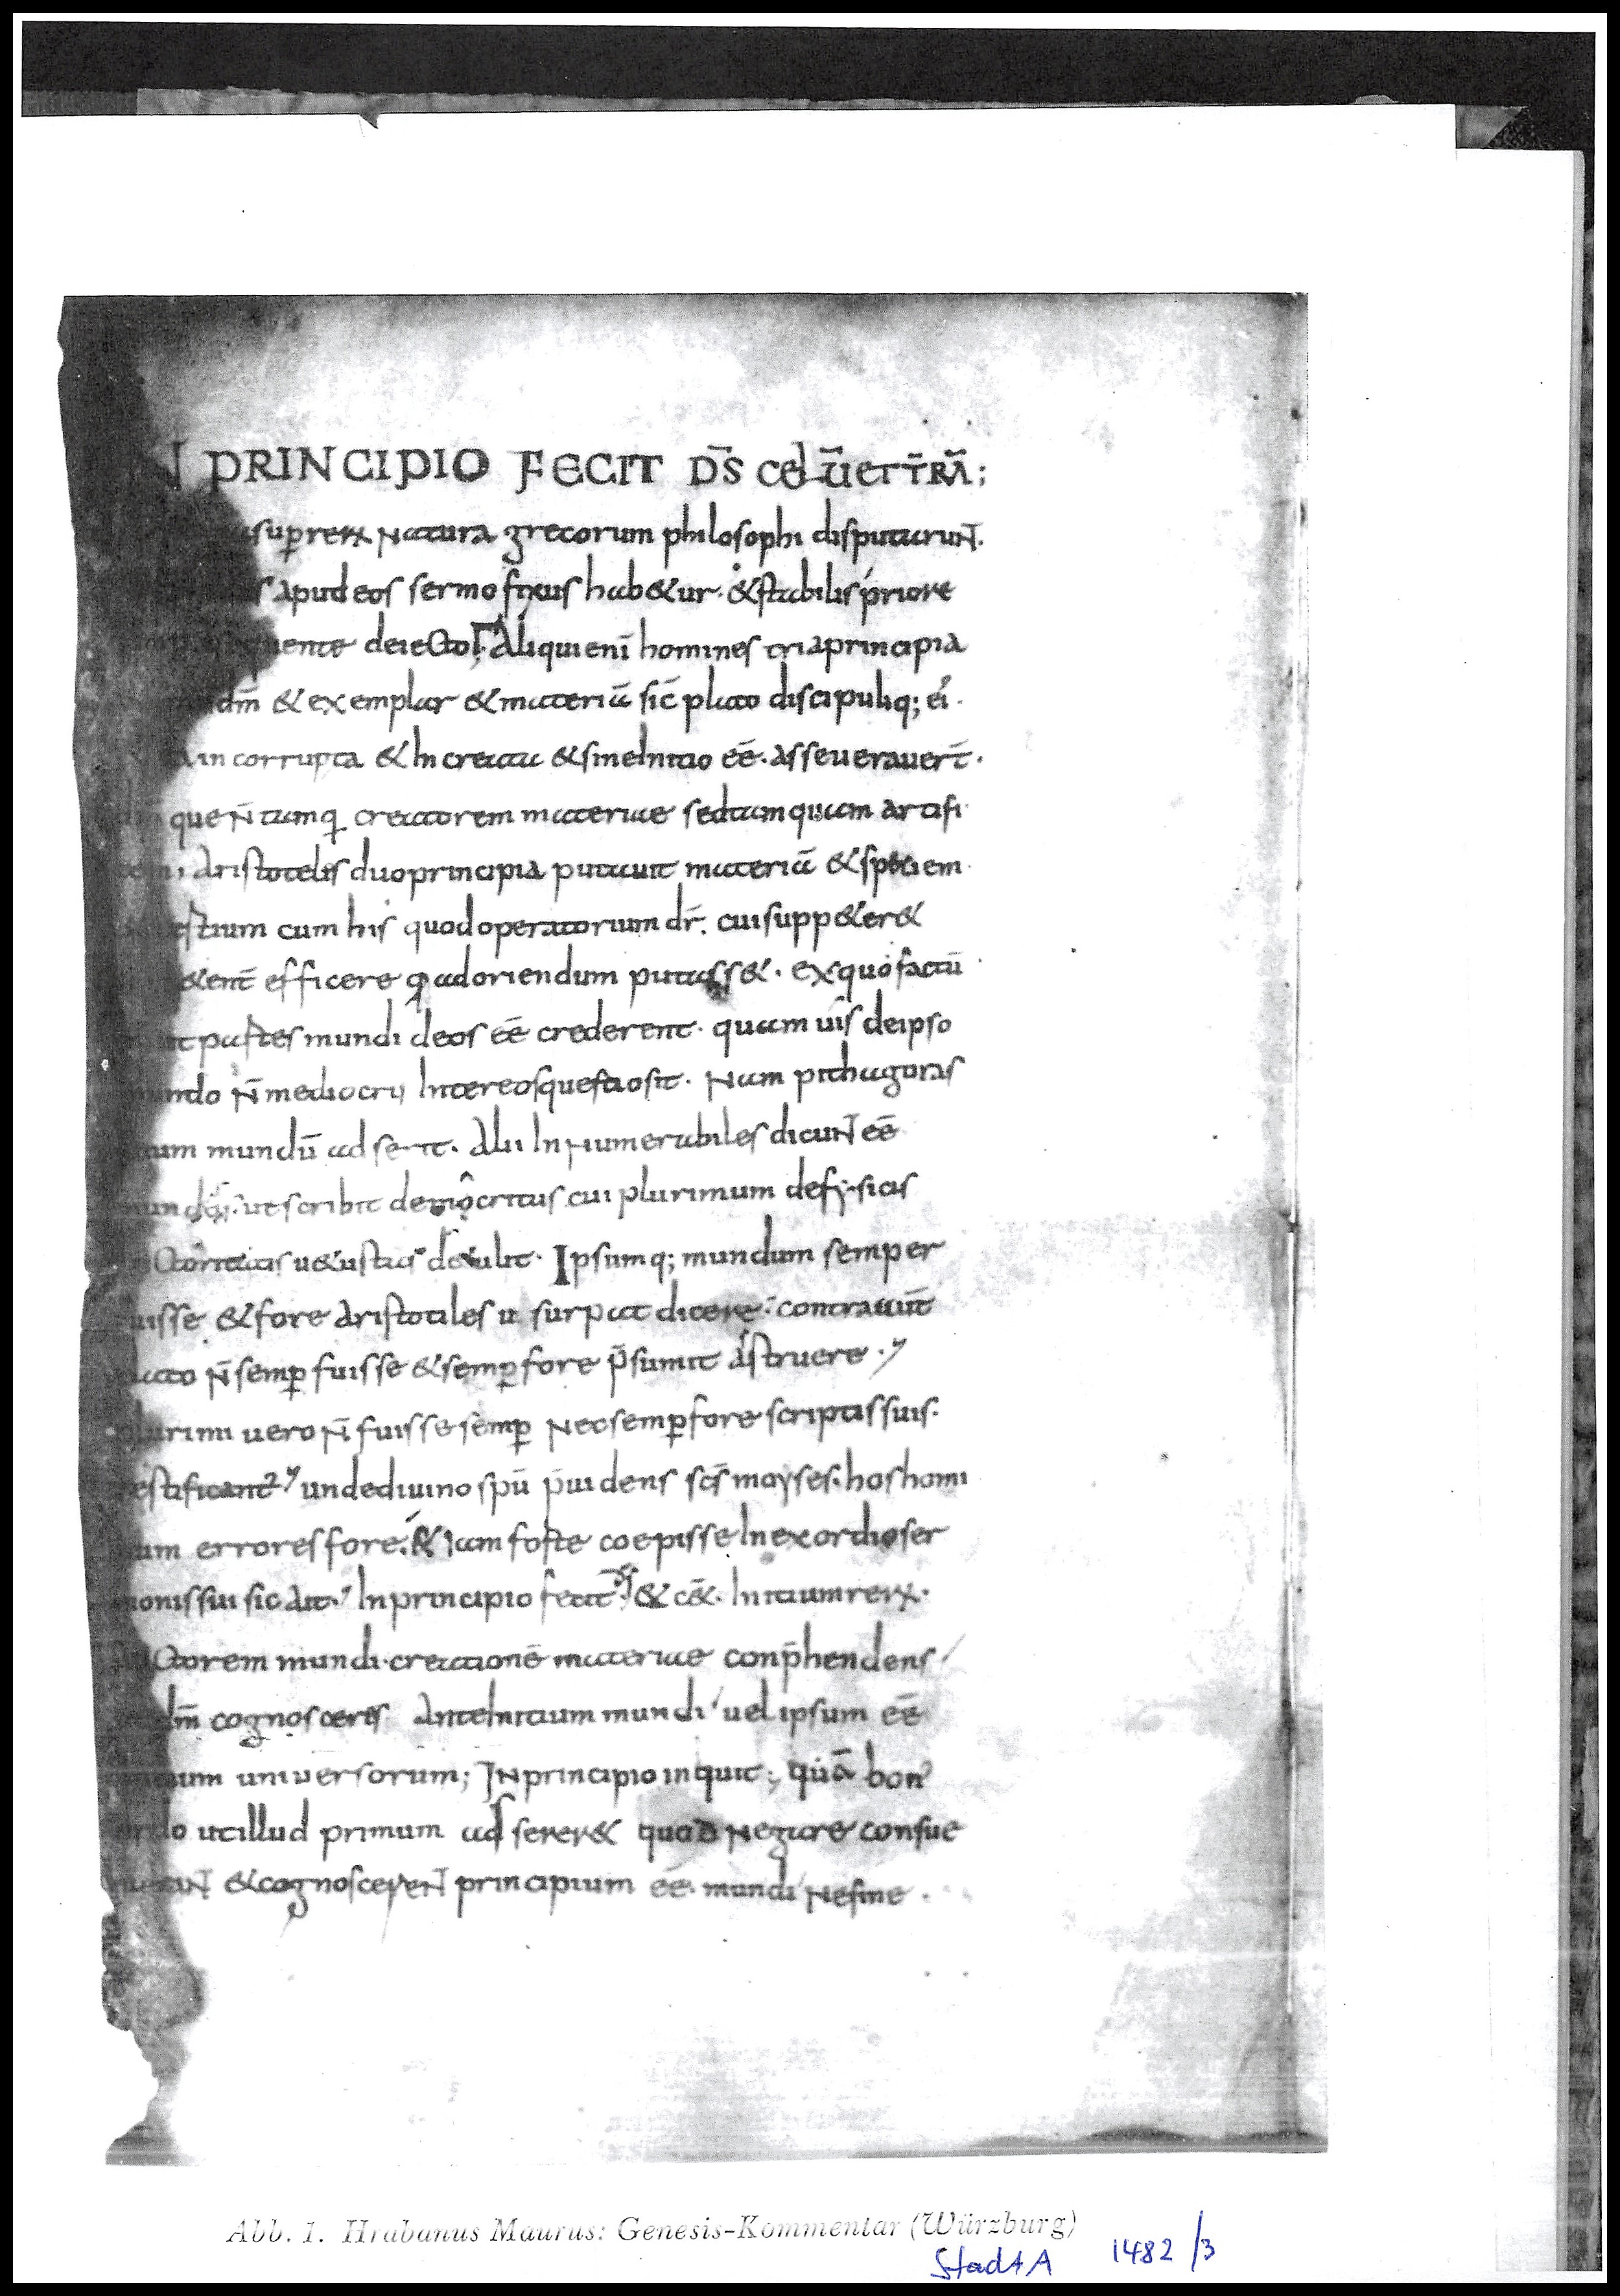 PRINCIPIO FECIT D̄S CĘLŪ ET T̄RĀ;
sup̱ rerꝝ natura grecorum philosophi disputarunt.
apud eos sermo fixus hab&ur. &stabilis priore
deiecto; Aliqui eni̅ homines tria principia
dm̅ & exemplar & materia̅ sic̅ plato discipuliq; ei'.
incorrupta & Increata & sine Initio ee̅. asseuerauer̅t.
que n̅ tamq̱ creatorem materiae sed tamquam artifi
Aristotelis duo principia putauit materia̅ & speciem
cum his quod operatorium dr̅. cui supp&er&
efficere q̱ adoriendum putass&. ex quo factu̅
partes mundi deos ee̅ crederent. quam uis de ipso
mundo n̅ mediocris Inter eos questio sit. Nam pithagoras
mundu̅ adserit. Alii Innumerabiles dicunt ee̅
ut scribit democritus cui plurimum de fysicis
u&ustas detulit. Ipsumq; mundum semper
fuisse & fore aristotiles usurpat dicere. contra aut̅
plato n̅ semp̱ fuisse & semp̱ fore p̅sumit astruere.
plurimi uero n̅ fuisse semp̱ nec semp̱ fore scriptis suis.
testificant² unde diuino spu̅ p̅uidens scs̅ moyses. hos homi
num errores fore. & iam forte coepisse In exordio ser
monis sui sic ait. In principio fecit d̅s & c&̅. Initium rerꝝ.
auctorem mundi. creatione̅ materiae conp̅hendens
dm̅ cognosceres Ante Initium mundi uel ipsum ee̅
universorum; In principio inquit; qua̅ bon'
ordo ut illud primum adserer& quod negare consue
& cognoscerent principium ee̅. mundi ne sine.
Abb. 1. Hrabanus Maurus: Genesis-Kommentar (Würzburg)
StadtA 1482/3